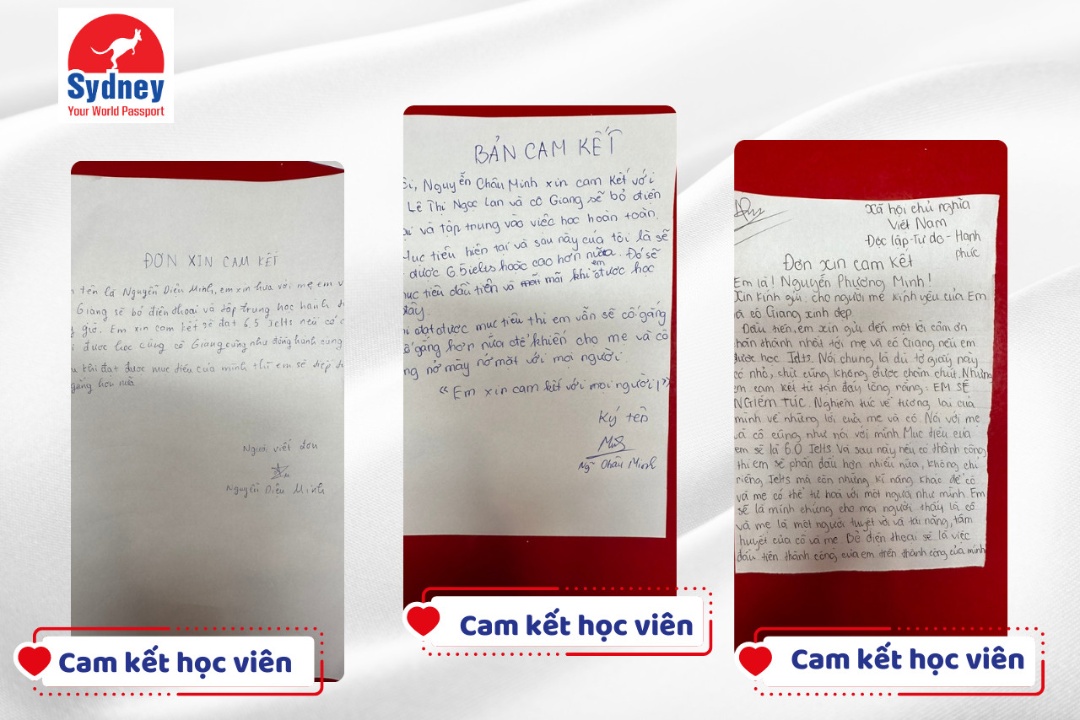 Sydney
Your World Passport
ĐƠN XIN CAM KẾT
tên là Nguyễn Diệu Minh, em xin hứa với mẹ em v
Giang sẽ bỏ điện thoại và tập trung học hành
giờ. Em xin cam kết sẽ đạt 6.5 Ielts nếu cô
được học cùng cô Giang cũng như đồng hành cùng
khi đạt được mục tiêu của mình thì em sẽ tiếp
gắng hơn nữa
Người viết đơn
Nguyễn Diệu Minh
Cam kết học viên
BẢN CAM KẾT
Nguyễn Châu Minh xin cam kết với
Lê Thị Ngọc Lan và cô Giang sẽ bỏ điện
và tập trung vào việc học hoàn toàn.
Mục tiêu hiện tại và sau này của tôi là sẽ
được 6.5 ielts hoặc cao hơn nữa. Đó sẽ
mục tiêu đầu tiên và mãi mãi khi em được học
đây.
đạt được mục tiêu thì em vẫn sẽ cố gắng
cố gắng hơn nữa để khiến cho mẹ và cô
nở mày nở mặt với mọi người.
"Em xin cam kết với mọi người!"
Ký tên
Ng Châu Minh
Cam kết học viên
Xã hội chủ nghĩa
Việt Nam
Độc lập-Tự do-Hạnh
phúc
Đơn xin cam kết
Em là! Nguyễn Phương Minh!
Xin kính gửi: cho người mẹ kính yêu của Em
và cô Giang xinh đẹp.
Đầu tiên, em xin gửi đến một lời cảm ơn
chân thành nhất tới mẹ và cô Giang nếu em
được học Ielts. Nói chung là dù tờ giấy này
có nhỏ, chữ cũng không được chăm chút. Nhưng
em cam kết từ tận đáy lòng rằng: EM SẼ
NGIÊM TÚC. Nghiêm túc về tương lai của
mình về những lời của mẹ và cô. Nói với mẹ
và cô cũng như nói với mình Mục tiêu của
em sẽ là 6.0 Ielts. Và sau này nếu có thành công
thì em sẽ phấn đấu hơn nhiều nữa, không chỉ
riêng Ielts mà còn những kĩ năng khác để cô
và mẹ có thể tự hào với một người như mình. Em
sẽ là minh chứng cho mọi người thấy là cô
và mẹ là một người tuyệt vời và tài năng, tâm
huyết của cô và mẹ. Dè điện thoại sẽ là việc
đầu tiên thành công của em trên thành công của mình
Cam kết học viên